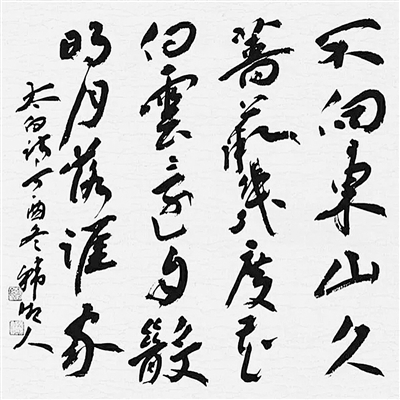 不向東山久
薔薇幾度花
白雲還自散
明月落誰家
太白詩丁酉冬